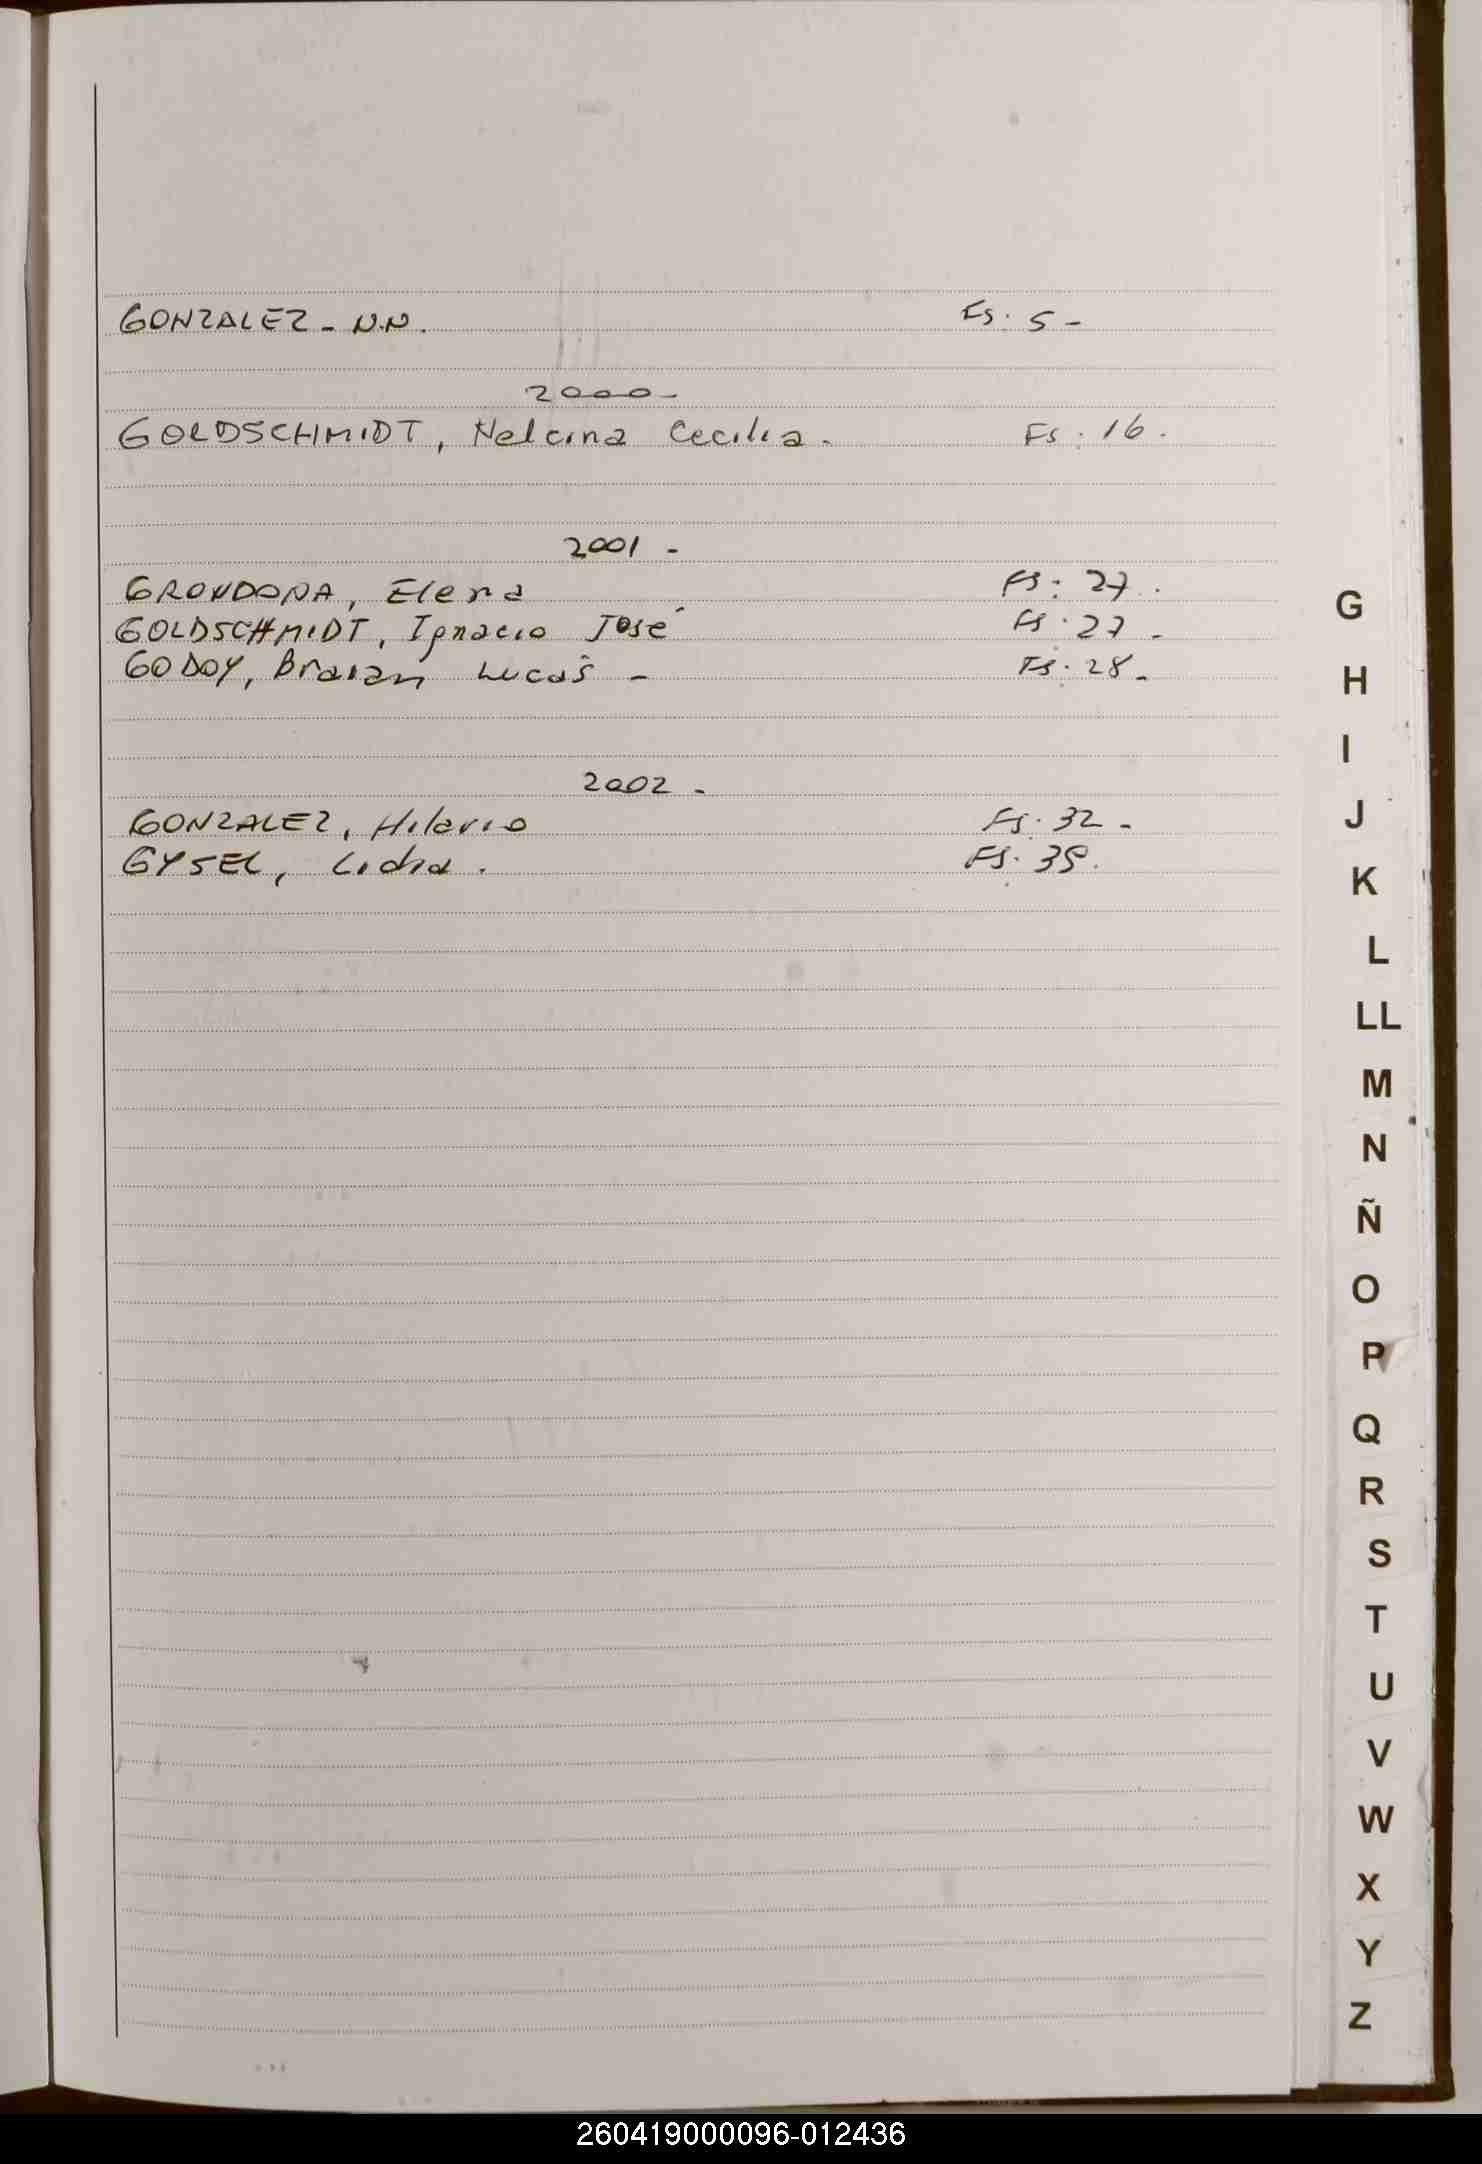 GONZALEZ - N.N. Fs: 5 -
2000 -
GOLDSCHMIDT, Nelcina Cecilia. Fs: 16.
2001 -
GRONDONA, Elena Fs: 27.
GOLDSCHMIDT, Ignacio José Fs: 27 -
GODOY, Braian Lucas - Fs: 28 -
2002 -
GONZALEZ, Hilario Fs: 32 -
GYSEL, Lidia. Fs:
G
H
I
J
K
L
LL
M
N
Ñ
O
P
Q
R
S
T
U
V
W
X
Y
Z
260419000096-012436